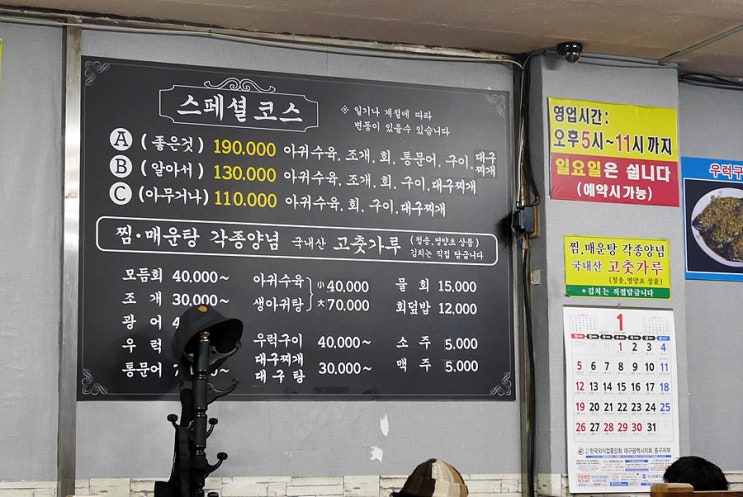 스페셜 코스
※ 일기나 계절에 따라
변동이 있을수 있습니다
A (좋은것) 190.000 아귀수육, 조개, 회, 통문어, 구이, 대구찌개
B (알아서) 130.000 아귀수육, 조개, 회, 구이, 대구찌개
C (아무거나) 110.000 아귀수육, 회, 구이, 대구찌개
찜·매운탕 각종양념 국내산 고춧가루 (청송, 영양초 상품)
김치는 직접 담급니다
모듬회 40.000~
조개 30.000~
광어
우럭
통문어
아귀수육
생아귀탕
小 40,000
大 70,000
우럭구이 40,000~
대구찌개
대구탕 30,000~
물회 15,000
회덮밥 12,000
소주 5,000
맥주 5,000
영업시간:
오후5시~11시까지
일요일은 쉽니다
(예약시 가능)
찜.매운탕 각종양념
국내산 고춧가루
(청송, 영양초 상품)
*김치는 직접담급니다
우럭구
1
1 2 3 4
5 6 7 8 9 10 11
12 13 14 15 16 17 18
19 20 21 22 23 24 25
26 27 28 29 30 31
한국외식업중앙회 대구광역시지회 중구지부